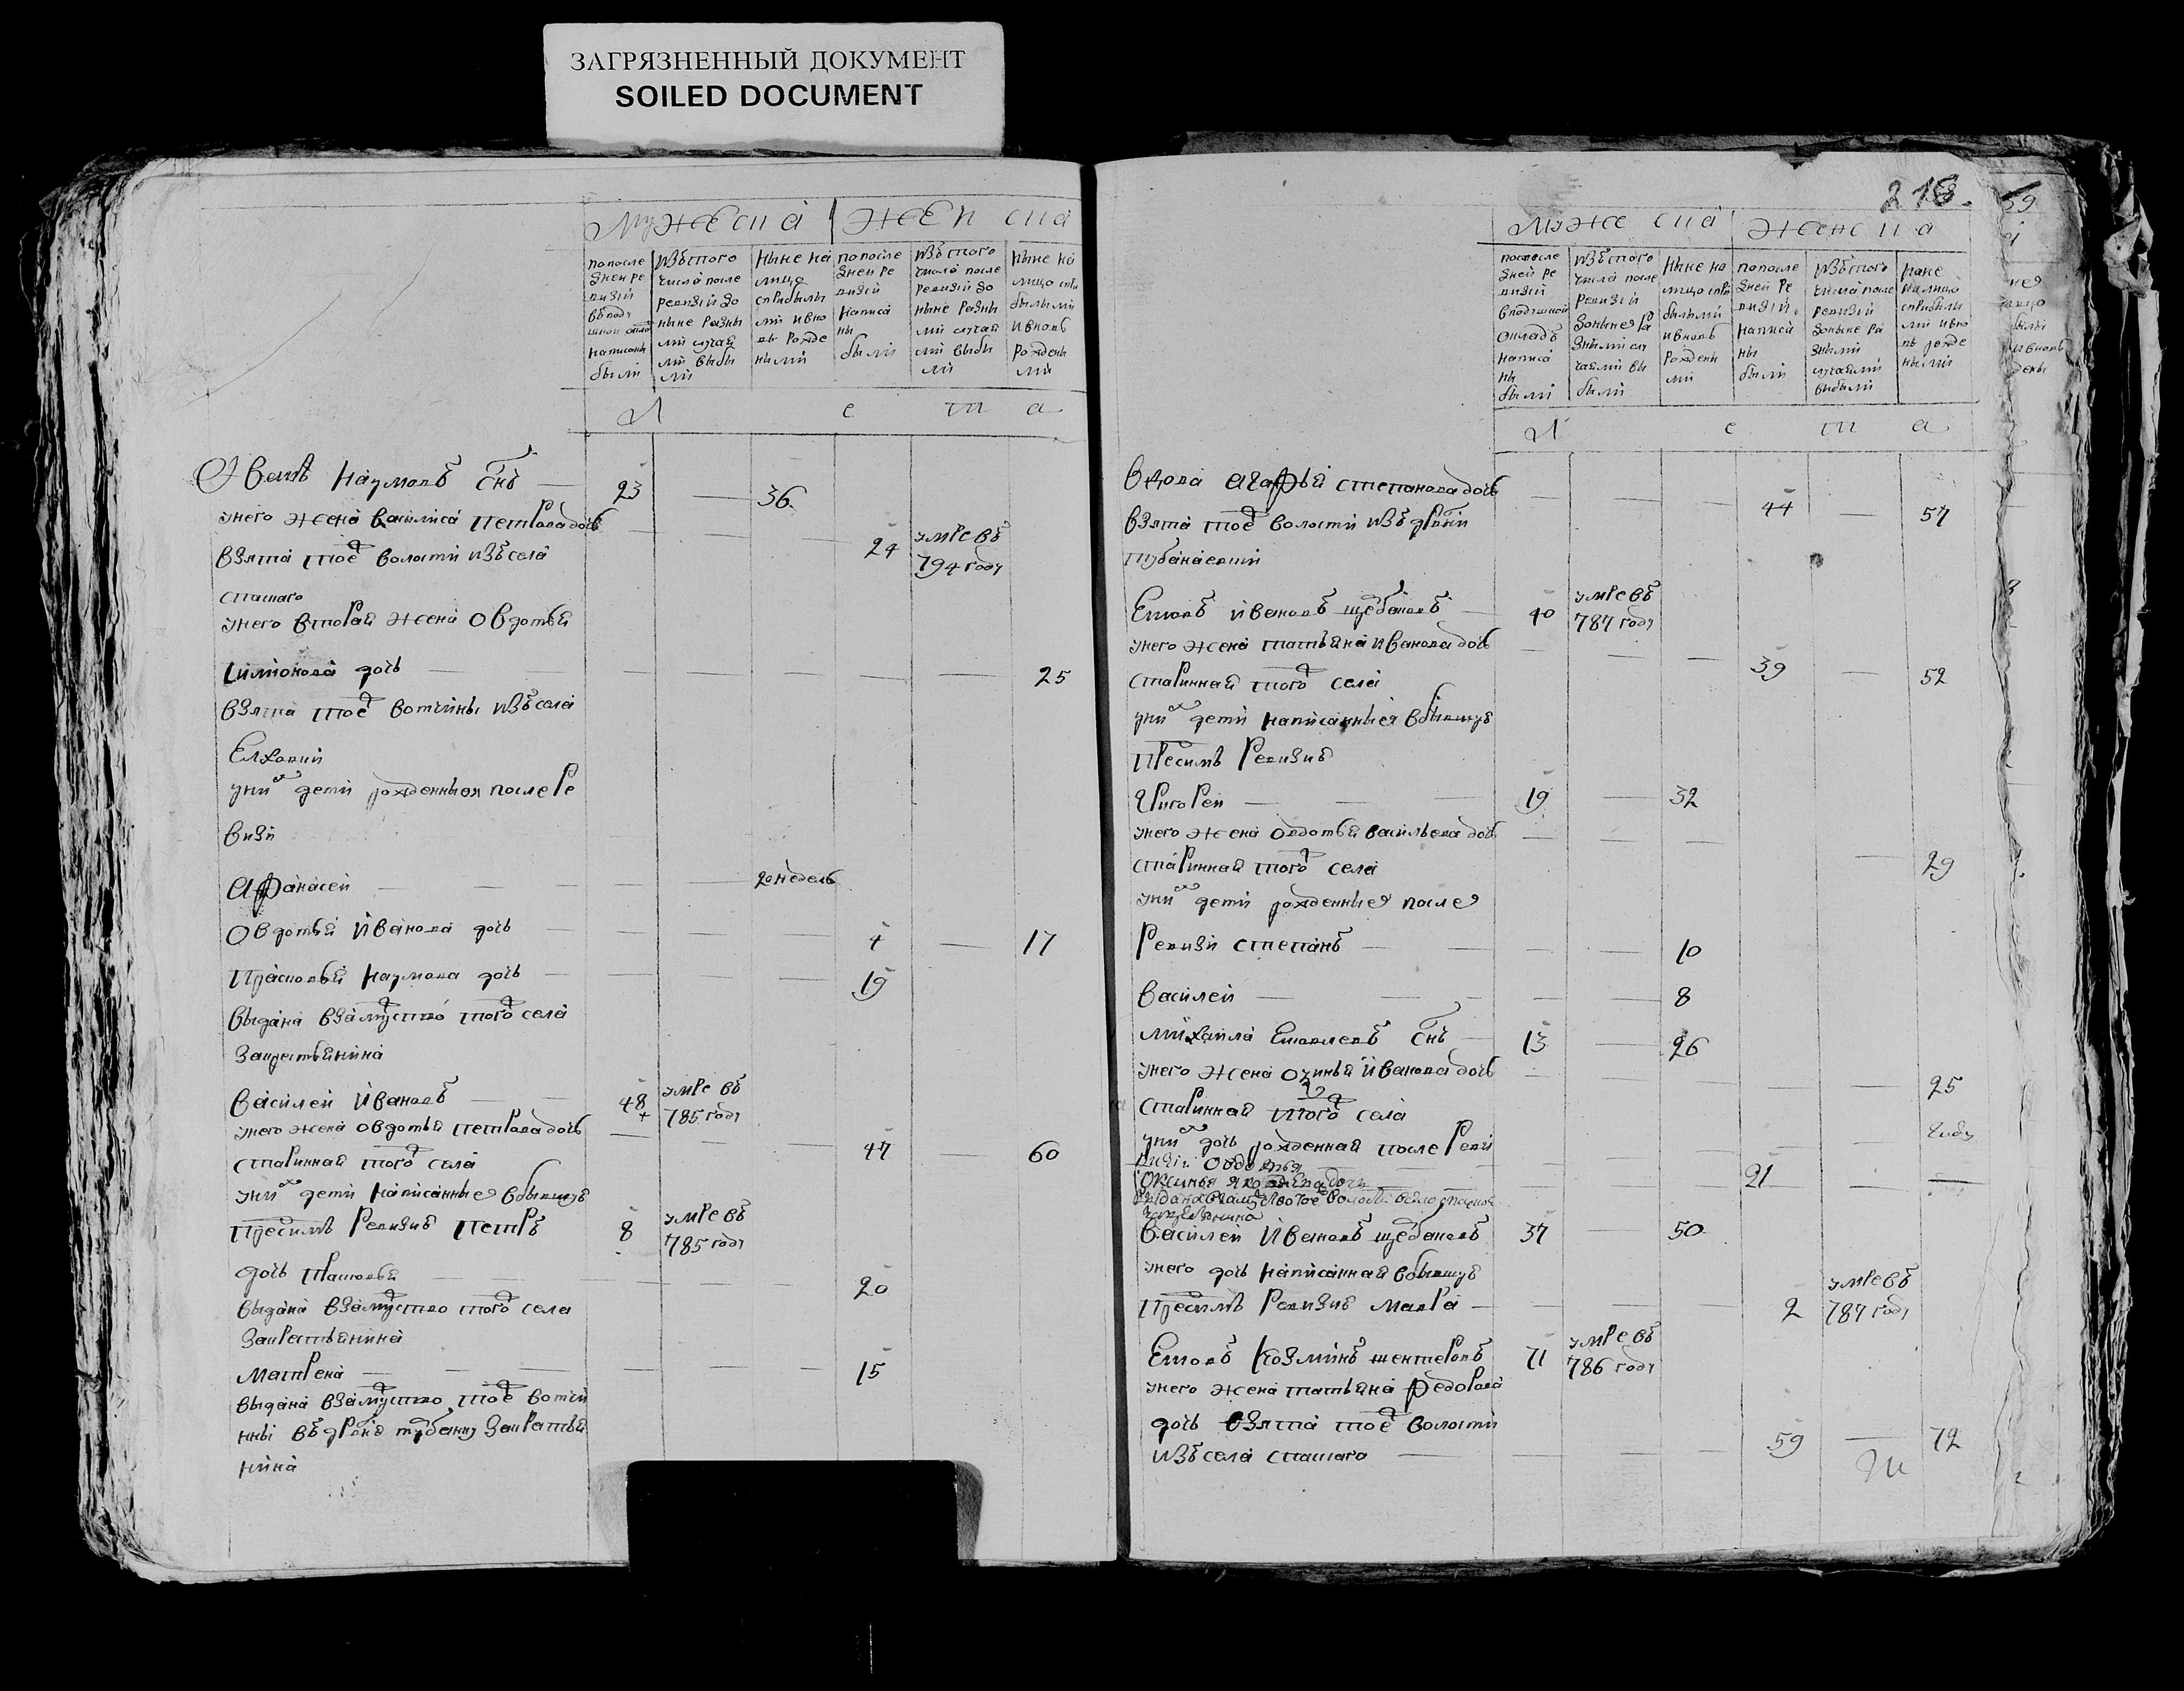 ЗАГРЯЗНЕННЫЙ ДОКУМЕНТ
SOILED DOCUMENT
мужеска женска
попосле дней ревизии вподушном окладе написаны были
изътого числа после ревизии до ныне разными случаи выбыли
ныне на лицо сприбылыми ивновь рожденными
попосле дней ревизии написаны были
изътого числа после ревизии до ныне разными случаи выбыли
ныне на лицо сприбылыми ивновь рождеными
л е т а
наумовъ снъ 23 — 36
унего жена василиса петрова дочь
взята тоеж волости изъ села 24 умре въ 794 году
спаского
унего вторая жена овдотья
симионова дочь 25
взята тоеж вотчины изъ села
Елховки
уних дети рожденныя после ре
визи
Афанасеи 20 недель
Овдотья Иванова дочь 4 — 17
Прасковья наумова дочь 19
выдана взамуство тогож села
закрестьянина
василеи Ивановъ 48 умре въ 785 году
унего жена овдотья петрова дочь
старинная тогож села 47 — 60
уних дети написанные вбывшую
пресимъ ревизию петръ 8 умре въ 785 году
дочь 20
выдана взамуство тогож села
закрестьянина
матрена 15
выдана взамуство тоеж вотчи
ны въ дрвню тубанку закрестья
нина
218.
муже ска женска
попосле дней ревизии вподушном окладе написаны были
изътого числа после ревизии доныне разными случаями выбыли
ныне на лицо сприбылыми ивновь рождены ми
попосле дней ревизии написаны были
изътого числа после ревизии доныне разными случаями выбыли
ныне налицо сприбылыми ивновь рожденными
л е т а
вдова агафья степанова дочь
взята тоеж волости изъ дрвни 44 — 57
тубанаевки
Яковъ Ивановъ щебаковъ 40 умре въ 787 году
унего жена татьяна иванова дочь
старинная тогож села 39 — 52
уних дети написанныя вбывшую
пресимъ ревизию
Григореи 19 — 32
унего жена овдотья васильева дочь
старинная тогож села 29
уних дети рожденные после
ревизи степанъ 10
василеи 8
михаила Яковлевъ снъ 13 — 26
унего жена Иванова дочь
старинная тогож села 25
уних дочь рожденная после реви
визии овдотья
Оксинья дочь 21
василеи Ивановъ щебаковъ 37 — 50
унего дочь написанная вбывшую
пресимъ ревизию мавра 2 умре въ 787 году
Яковъ Козминъ 71 умре въ 786 году
унего жена татьяна федорова
дочь взята тоеж волости
изъ села спаского 59 — 72